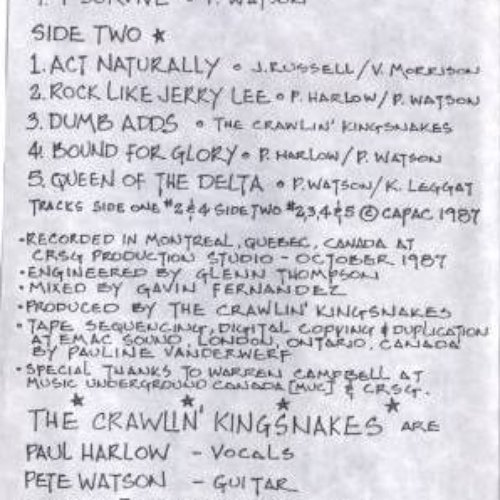 4. I SURVIVE • P. WATSON
SIDE TWO ★
1. ACT NATURALLY • J. RUSSELL/V. MORRISON
2. ROCK LIKE JERRY LEE • P. HARLOW/P. WATSON
3. DUMB ADDS • THE CRAWLIN' KINGSNAKES
4. BOUND FOR GLORY • P. HARLOW/P. WATSON
5. QUEEN OF THE DELTA • P. WATSON/K. LEGGAT
TRACKS SIDE ONE #2&4 SIDE TWO #2,3,4&5 © CAPAC 1987
• RECORDED IN MONTREAL, QUEBEC, CANADA AT
CRSG PRODUCTION STUDIO - OCTOBER 1987
• ENGINEERED BY GLENN THOMPSON
• MIXED BY GAVIN FERNANDEZ
• PRODUCED BY THE CRAWLIN' KINGSNAKES
• TAPE SEQUENCING, DIGITAL COPYING & DUPLICATION
AT EMAC SOUND, LONDON, ONTARIO, CANADA
BY PAULINE VANDERWERF
• SPECIAL THANKS TO WARREN CAMPBELL AT
MUSIC UNDERGROUND CANADA [MUC] & CRSG.
THE CRAWLIN' KINGSNAKES ARE
PAUL HARLOW - VOCALS
PETE WATSON - GUITAR